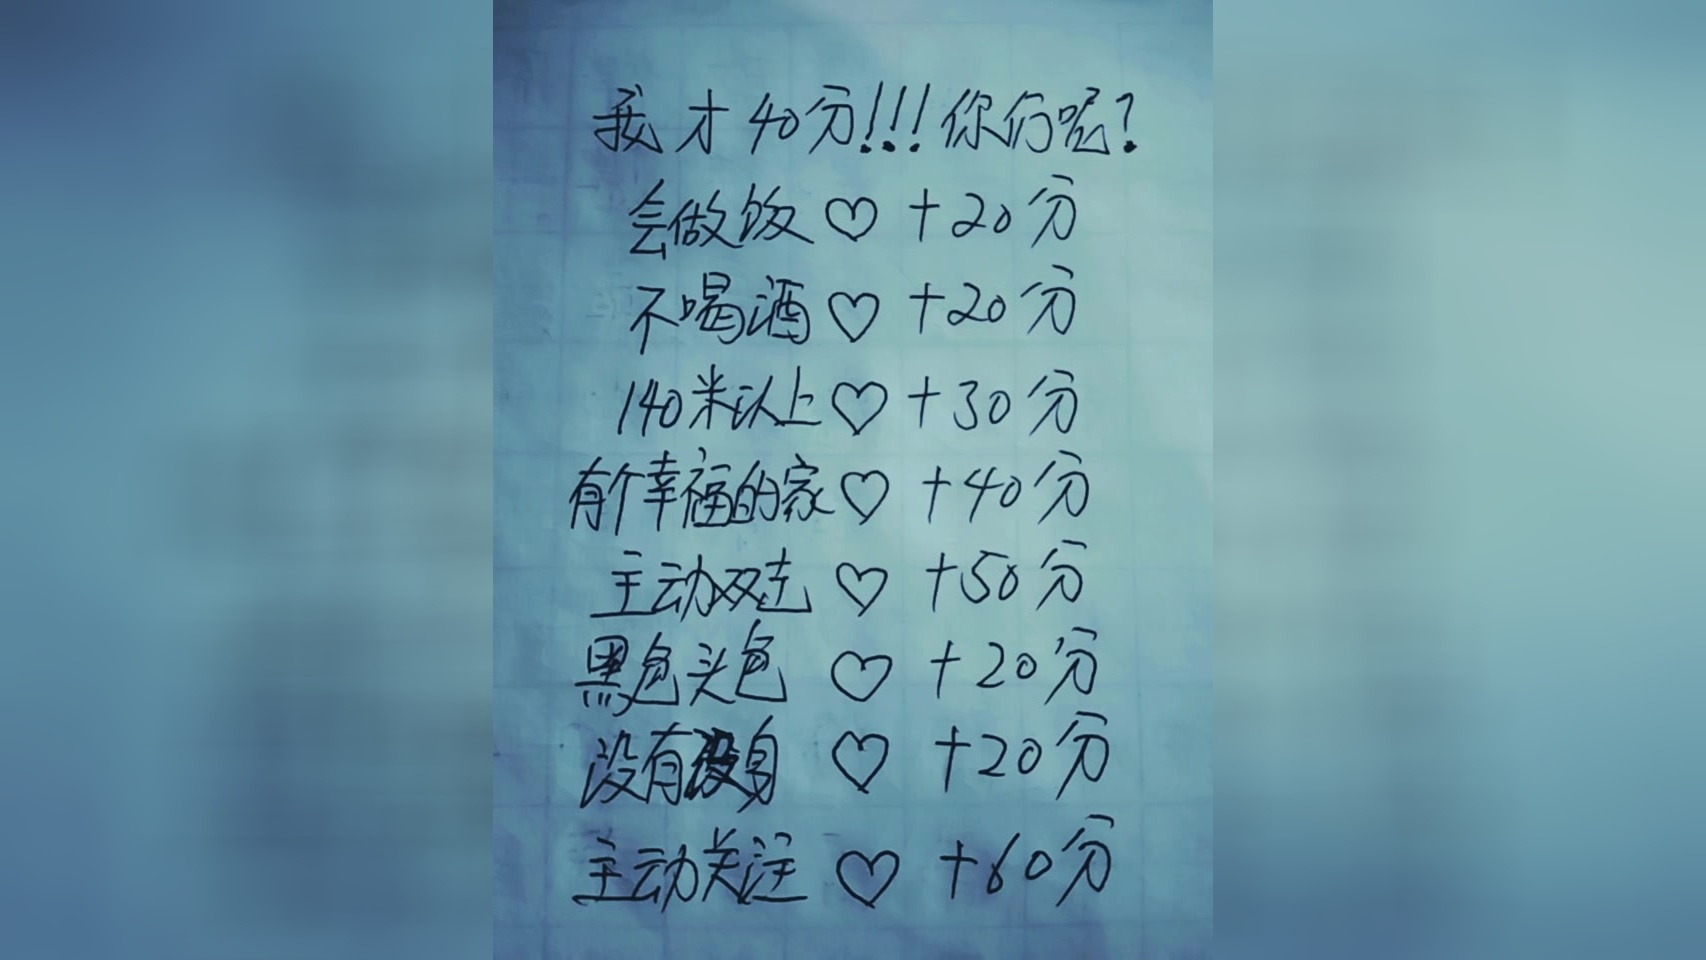 我才40分!!!你们呢?
会做饭♡+20分
不喝酒♡+20分
140米以上♡+30分
有个幸福的家♡+40分
主动双击♡+50分
黑色头色♡+20分
没有身♡+20分
主动关注♡+60分